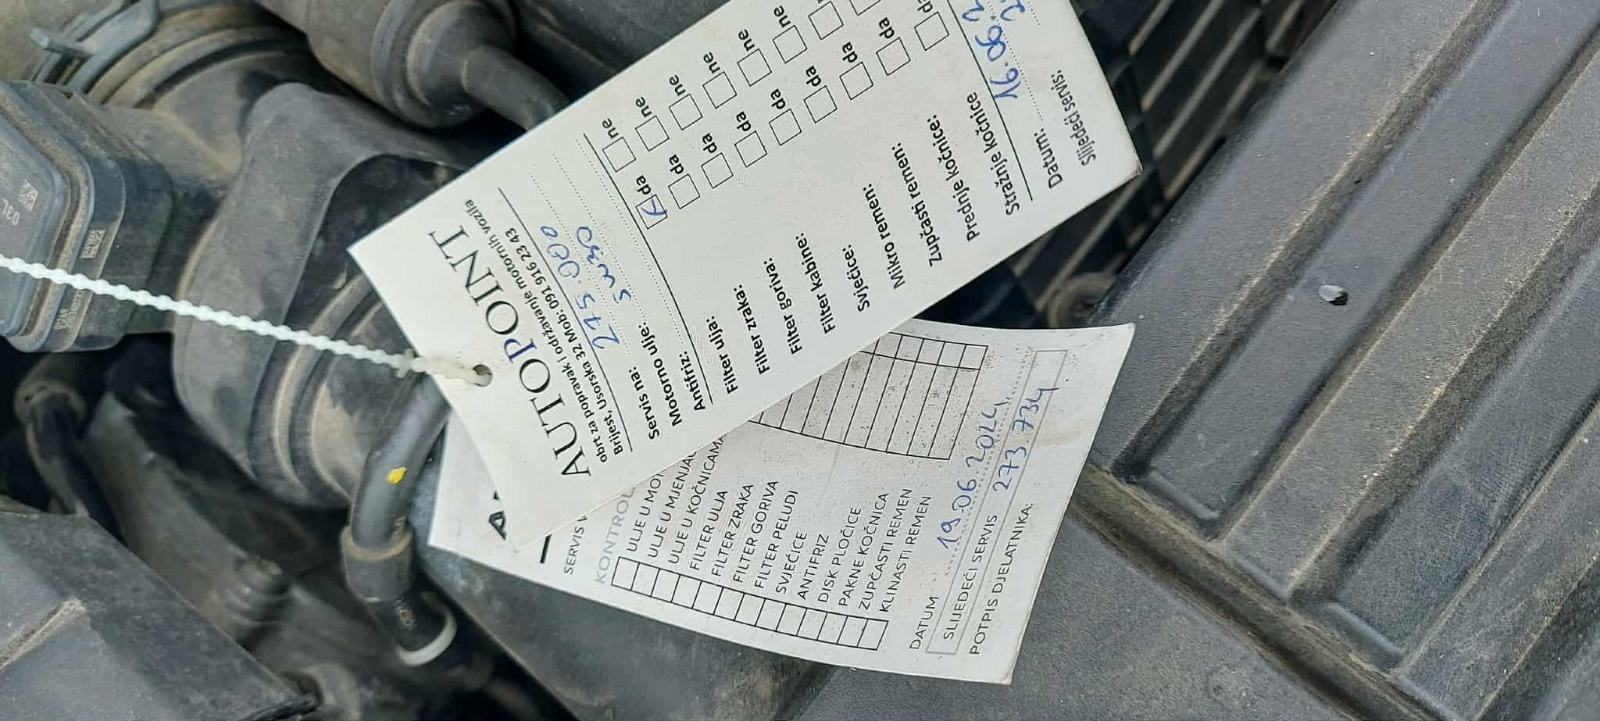 AUTOPOINT
obrt za popravak i održavanje motornih vozila
Brijest, Usorska 32 Mob: 091 916 23 43
Servis na: 275.000
Motorno ulje: 5W30
Antifriz:
Filter ulja: da ne
Filter zraka: da ne
Filter goriva: da ne
Filter kabine: da ne
Svjećice: da ne
Mikro remen: da
Zupčasti remen: da
Prednje kočnice: da
Stražnje kočnice: da
Datum: 16.06.2
Slijedeći servis: 2
SERVIS
KONTROL
ULJE U MO
ULJE U MJENJAČ
ULJE U KOČNICAMA
FILTER ULJA
FILTER ZRAKA
FILTER GORIVA
FILTER PELUDI
SVJEĆICE
ANTIFRIZ
DISK PLOČICE
PAKNE KOČNICA
ZUPČASTI REMEN
KLINASTI REMEN
DATUM 19.06.2024.
SLIJEDEĆI SERVIS 273.734
POTPIS DJELATNIKA:
03L